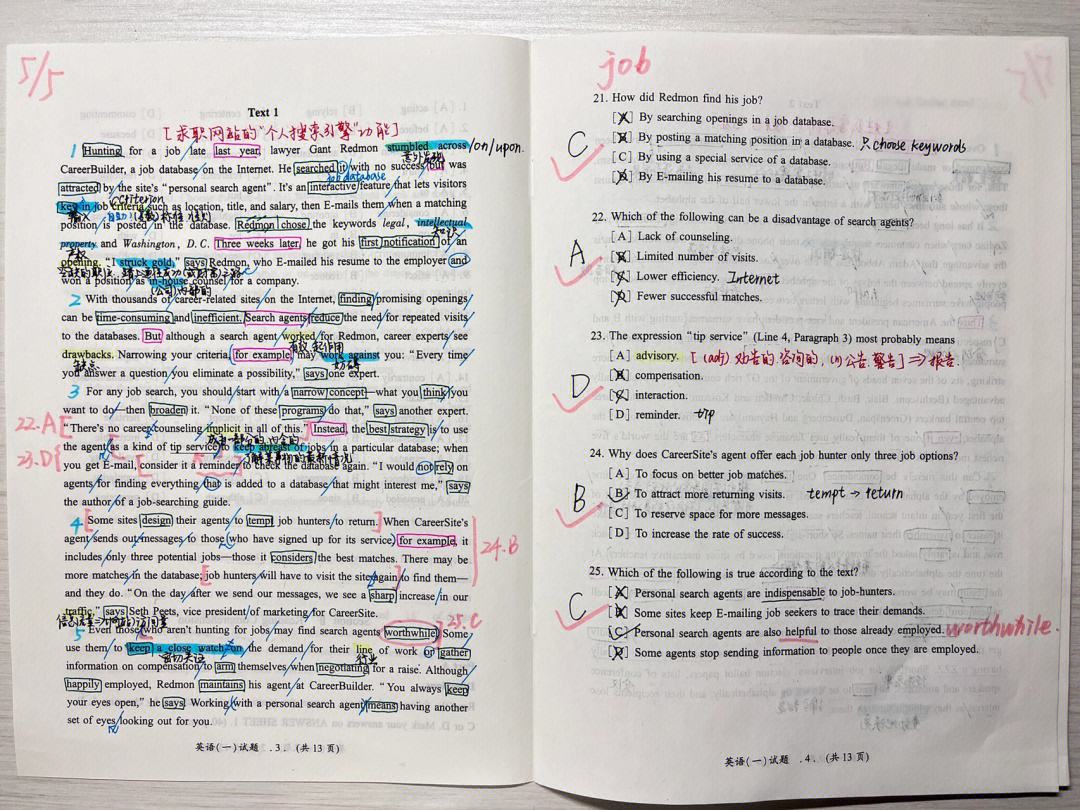 5/5
Text 1
[求职网站的"个人搜索引擎"功能]
1 Hunting for a job late last year, lawyer Gant Redmon stumbled across /on/upon.
意外发现
CareerBuilder, a job database on the Internet. He searched it with no success but was
job database
attracted by the site's "personal search agent". It's an interactive feature that lets visitors
criterion
key in job criteria such as location, title, and salary, then E-mails them when a matching
输入
position is posted in the database. Redmon chose the keywords legal, intellectual
知识
property and Washington, D.C. Three weeks later, he got his first notification of an
产权
opening. "I struck gold," says Redmon, who E-mailed his resume to the employer and
空缺的职位
won a position as in-house counsel for a company.
(公司)内部的
2 With thousands of career-related sites on the Internet, finding promising openings
can be time-consuming and inefficient. Search agents reduce the need for repeated visits
to the databases. But although a search agent worked for Redmon, career experts see
有效 起作用
drawbacks. Narrowing your criteria, for example, may work against you: "Every time
缺点 妨碍
you answer a question you eliminate a possibility," says one expert.
3 For any job search, you should start with a narrow concept—what you think you
want to do—then broaden it. "None of these programs do that," says another expert.
22.A[ "There's no career counseling implicit in all of this." Instead, the best strategy is to use
23.D{ the agent as a kind of tip service to keep abreast of jobs in a particular database; when
了解某事物的最新情况
you get E-mail, consider it a reminder to check the database again. "I would not rely on
agents for finding everything that is added to a database that might interest me," says
the author of a job-searching guide.
4 [Some sites design their agents to tempt job hunters to return.] When CareerSite's
agent sends out messages to those who have signed up for its service, for example, it
includes only three potential jobs—those it considers the best matches. There may be
24.B
more matches in the database; [job hunters will have to visit the site again] to find them—
and they do. "On the day after we send our messages, we see a sharp increase in our
traffic," says Seth Peets, vice president of marketing for CareerSite.
25.C
5 Even those who aren't hunting for jobs may find search agents worthwhile. Some
use them to keep a close watch on the demand for their line of work or gather
密切关注 行业
information on compensation to arm themselves when negotiating for a raise. Although
happily employed, Redmon maintains his agent at CareerBuilder. "You always keep
your eyes open," he says. Working with a personal search agent means having another
set of eyes looking out for you.
英语(一)试题 .3. (共13页)
job
21. How did Redmon find his job?
[A] By searching openings in a job database.
[B] By posting a matching position in a database. 只chose keywords
C
[C] By using a special service of a database.
[D] By E-mailing his resume to a database.
22. Which of the following can be a disadvantage of search agents?
[A] Lack of counseling.
A
[B] Limited number of visits.
[C] Lower efficiency. Internet
[D] Fewer successful matches.
23. The expression "tip service" (Line 4, Paragraph 3) most probably means
[A] advisory. [(adj) 劝告的, 咨询的, (n)公告 警告] ⇒报告.
[B] compensation.
D
[C] interaction.
[D] reminder. tip
24. Why does CareerSite's agent offer each job hunter only three job options?
[A] To focus on better job matches.
B
[B] To attract more returning visits. tempt → return
[C] To reserve space for more messages.
[D] To increase the rate of success.
25. Which of the following is true according to the text?
[A] Personal search agents are indispensable to job-hunters.
C
[B] Some sites keep E-mailing job seekers to trace their demands.
[C] Personal search agents are also helpful to those already employed. worthwhile.
[D] Some agents stop sending information to people once they are employed.
英语(一)试题 .4. (共13页)